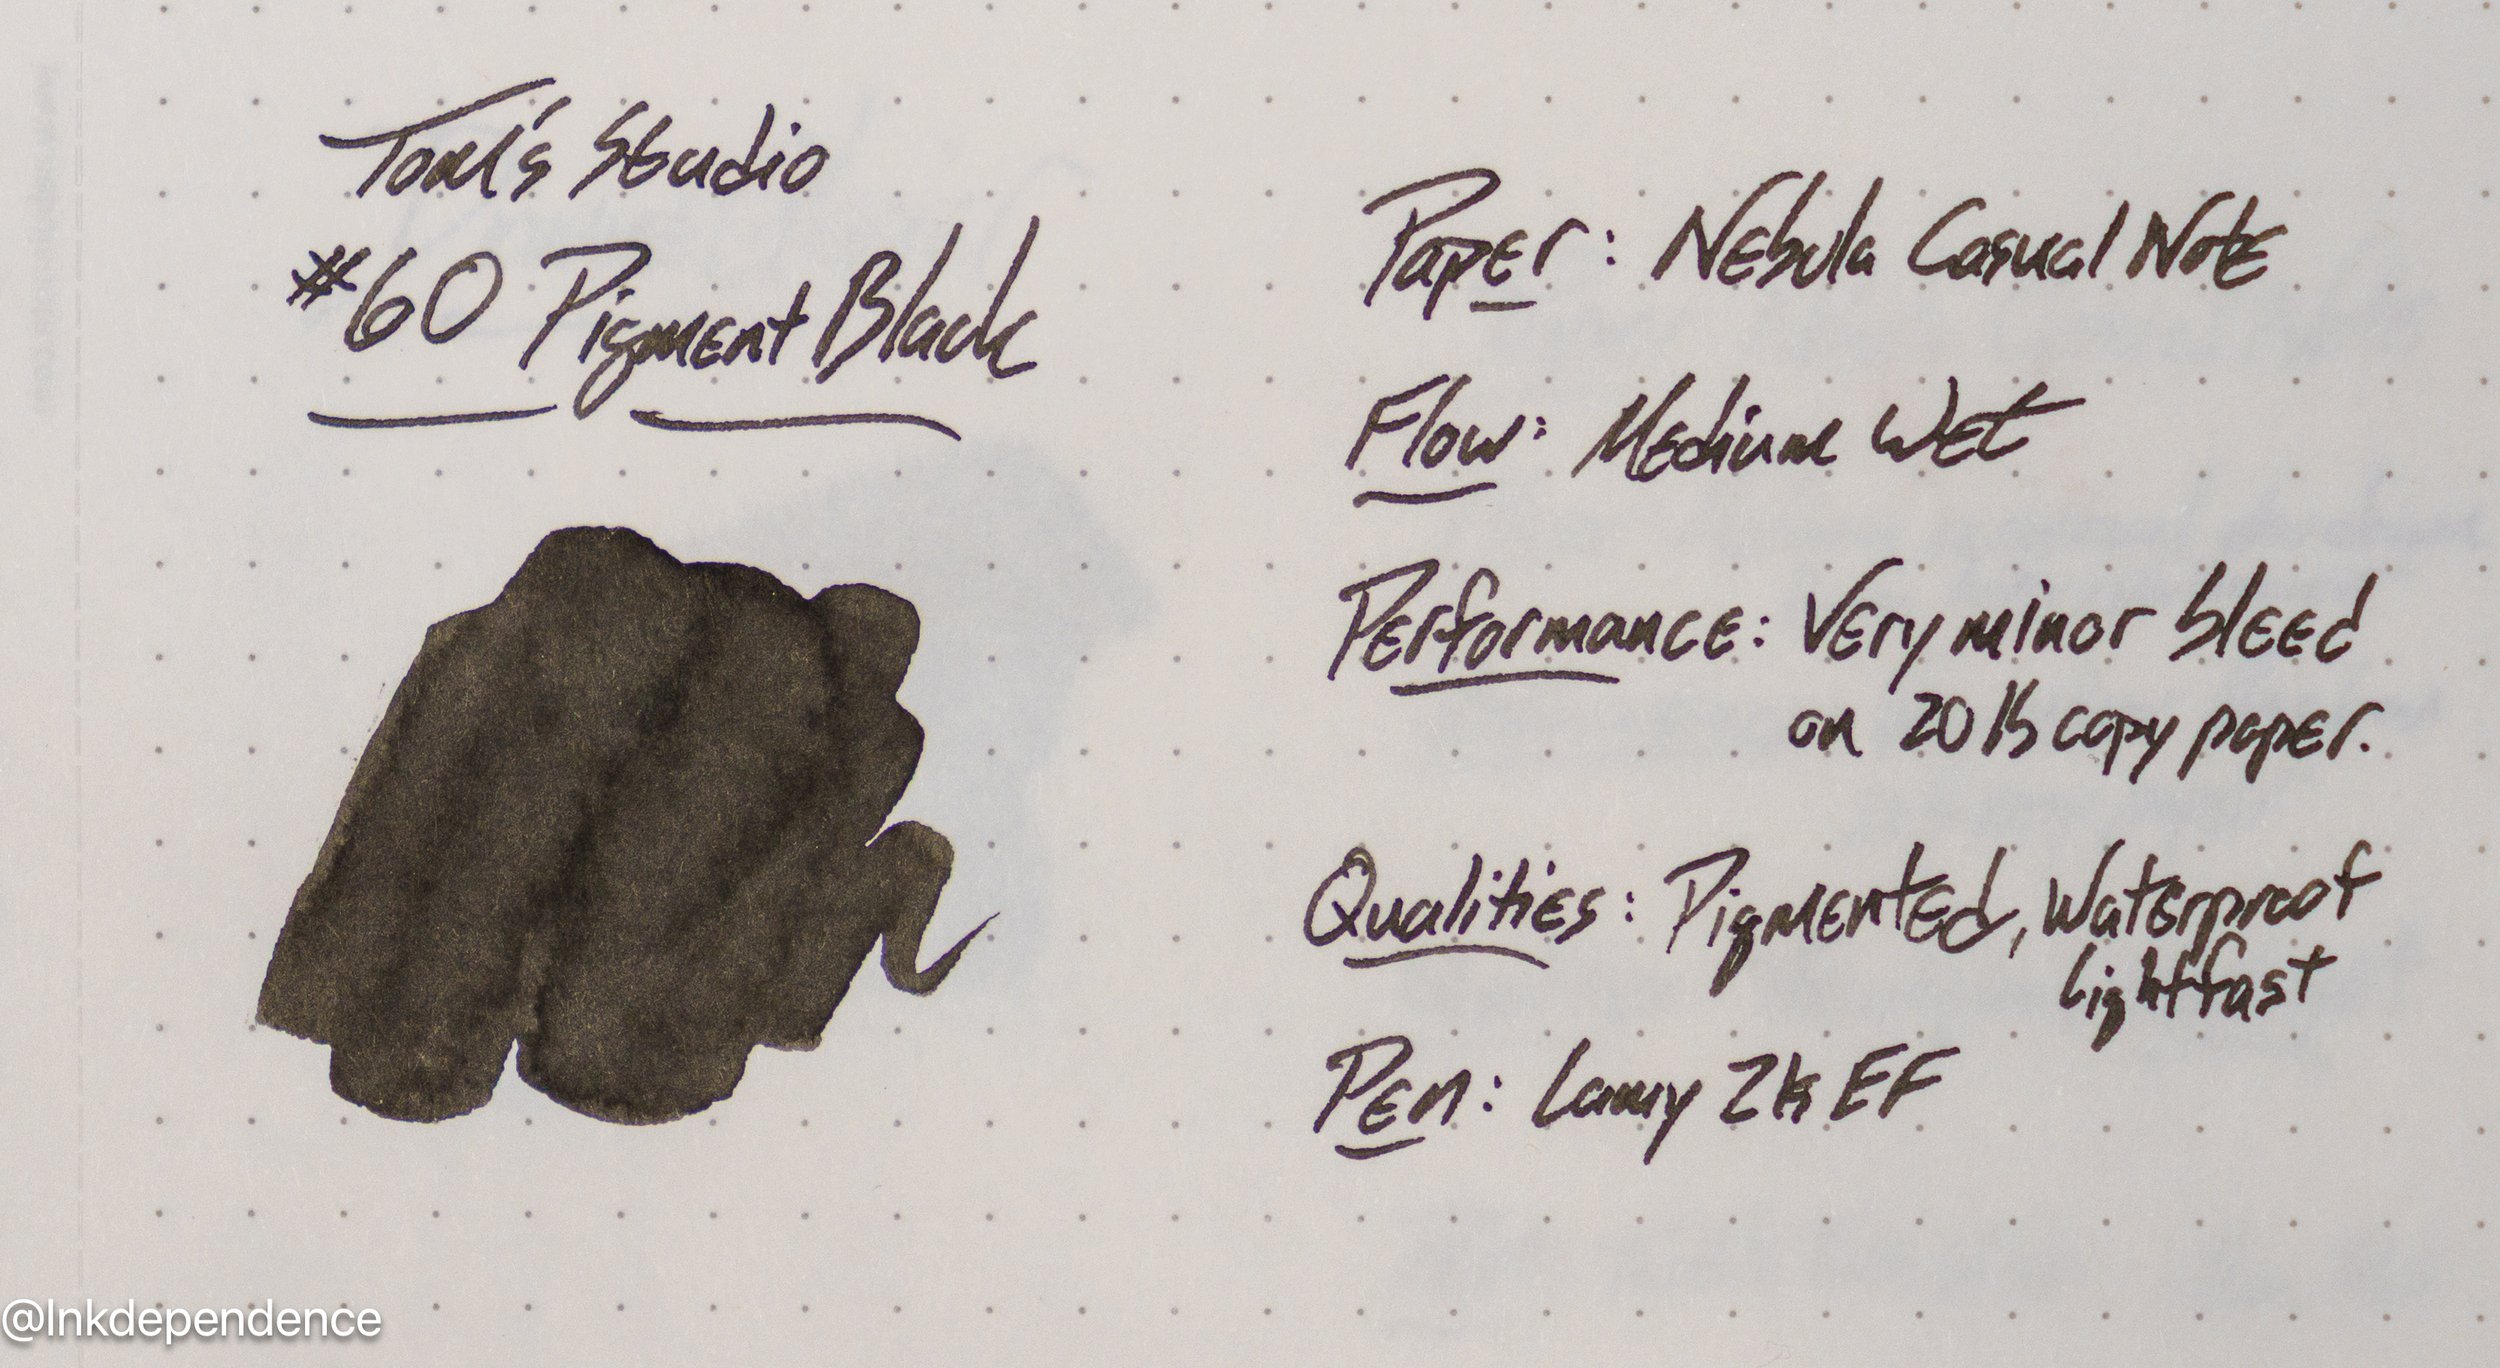 Tom's Studio
#60 Pigment Black
Paper: Nebula Casual Note
Flow: Medium Wet
Performance: Very minor bleed
on 20 lb copy paper.
Qualities: Pigmented, Waterproof
Lightfast
Pen: Lamy 2k EF
@Inkdependence